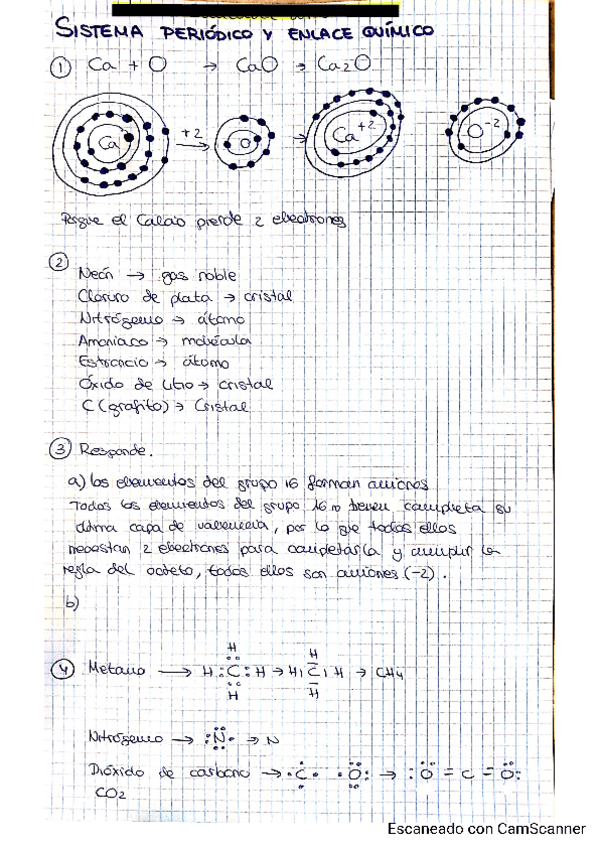 SISTEMA PERIÓDICO Y ENLACE QUÍMICO
① Ca + O → CaO → Ca2O
Ca +2 → O → Ca+2 O-2
Porque el Calcio pierde 2 electrones
②
Neón → gas noble
Cloruro de plata → cristal
Nitrógeno → átomo
Amoniaco → molécula
Estroncio → átomo
Óxido de litio → cristal
C (grafito) → Cristal
③ Responde.
a) los elementos del grupo 16 forman aniones
Todos los elementos del grupo 16 no tienen completa su
última capa de valencia, por lo que todos ellos
necesitan 2 electrones para completarla y cumplir la
regla del octeto, todos ellos son aniones (-2).
b)
H H
④ Metano → H:C:H → H C H → CH4
H H
Nitrógeno → :N· → N
Dióxido de carbono → ·C· ·O: → :O = C = O:
CO2
Escaneado con CamScanner